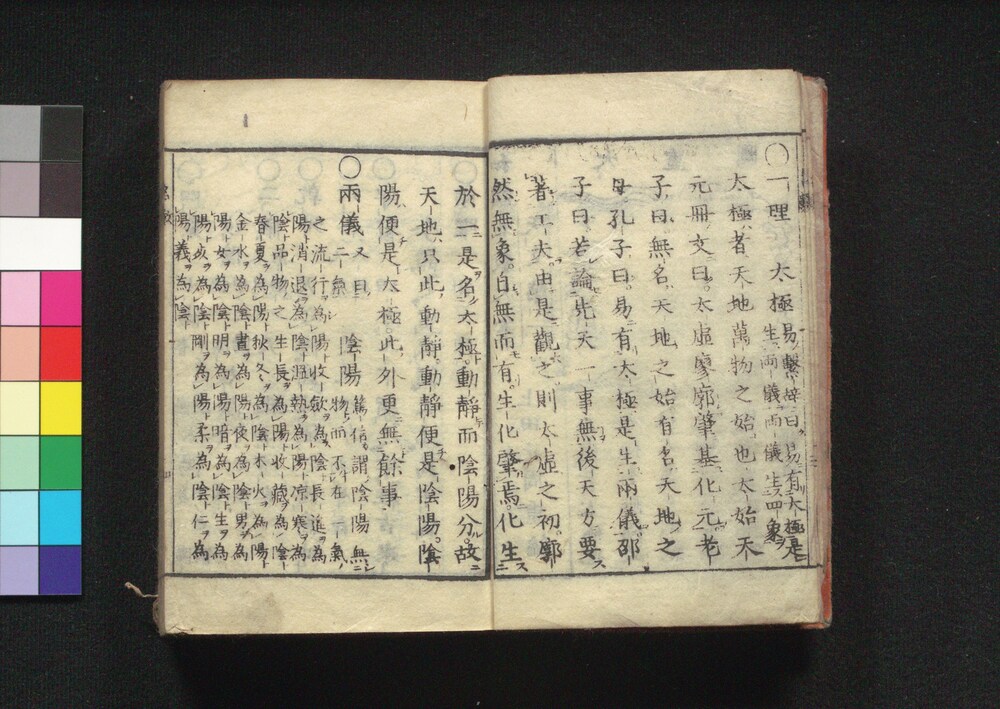 〇一理 太極 易繋辞曰易有太極是
生両儀両儀生四象
太極者天地萬物之始也太始天
元冊文曰太虚廖廓肇基化元老
子曰無名天地之始有名天地之
母孔子曰易有太極是生兩儀邵
子曰若論先天一事無後天方要
著工夫由是觀之則太虚之初廓
然無象自無而有生化肇焉化生
於一是名太極動静而陰陽分故
天地只此動静動静便是陰陽陰
陽便是太極此外更無餘事
〇兩儀 又曰二氣 陰陽 篤信謂陰陽無
物而不在一氣
之流行為陽收斂為陰長進為
陽消退為陰温熱為陽凉寒為
陰品物之生長為陽收藏為陰
春夏為陽秋冬為陰木火為陽
金水為陰晝為陽夜為陰男為
陽女為陰明為陽暗為陰生為
陽死為陰剛為陽柔為陰仁為
陽義為陰